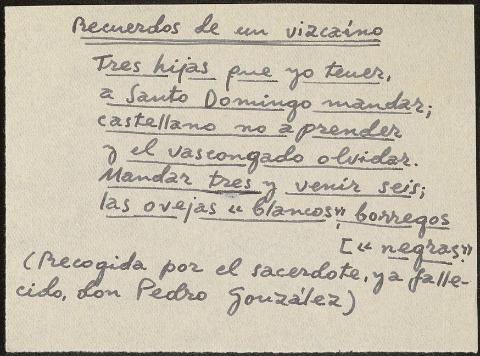 Recuerdos de un vizcaíno
Tres hijas que yo tener,
a Santo Domingo mandar;
castellano no aprender
y el vascongado olvidar.
Mandar tres y venir seis;
las ovejas « blancos », borregos
[« negras »
(Recogida por el sacerdote, ya falle-
cido, don Pedro González)